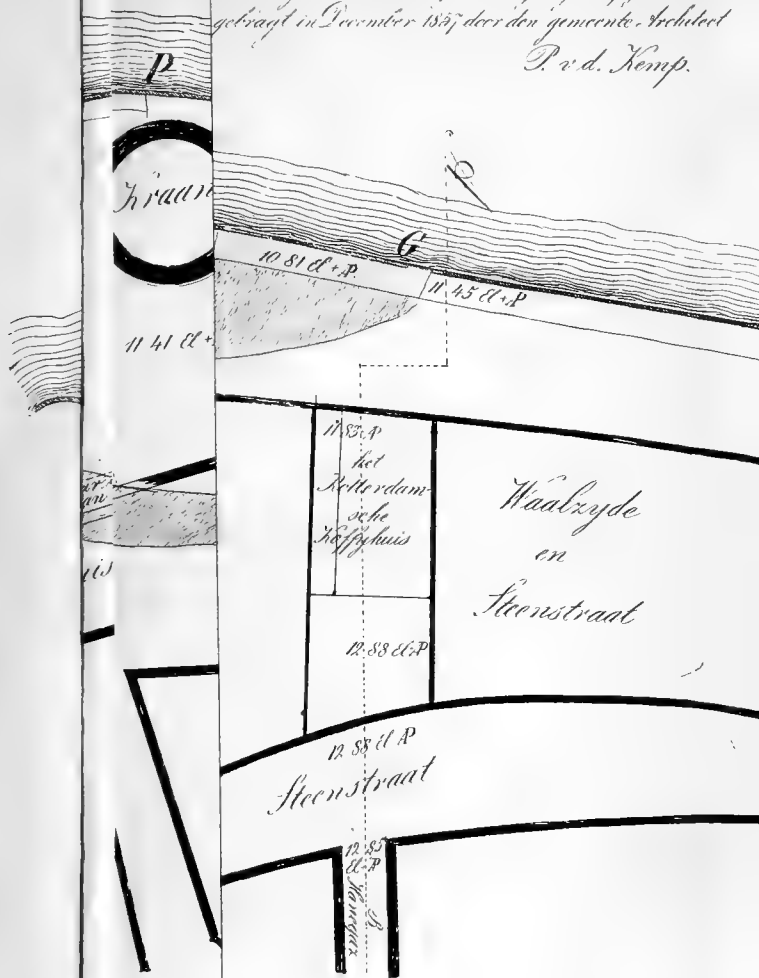 gebragt in December 1857 door den gemeente-Architect
P. v. d. Kemp.
P
Kraan
G
10 81 El + AP.
11 45 El + AP
11 41 El +
11 83 AP
het
Rotterdam-
sche
Koffyhuis
Waalzyde
en
Steenstraat
uis
12 88 El AP
12 88 El AP
Steenstraat
12 85
El + AP